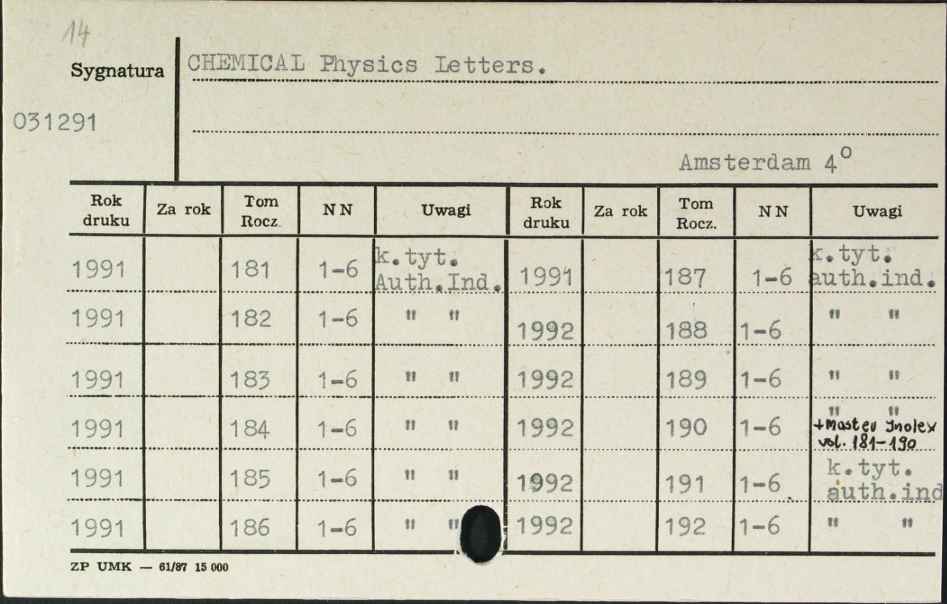 14
Sygnatura CHEMICAL Physics Letters.
031291
Amsterdam 4º
Rok druku Za rok Tom Rocz. NN Uwagi Rok druku Za rok Tom Rocz. NN Uwagi
1991 181 1-6 k.tyt. Auth.Ind. 1991 187 1-6 k.tyt. auth.ind.
1991 182 1-6 " " 1992 188 1-6 " "
1991 183 1-6 " " 1992 189 1-6 " "
1991 184 1-6 " " 1992 190 1-6 " " + Master Index vol. 181-190
1991 185 1-6 " " 1992 191 1-6 k.tyt. auth.ind
1991 186 1-6 " " 1992 192 1-6 " "
ZP UMK — 61/87 15 000